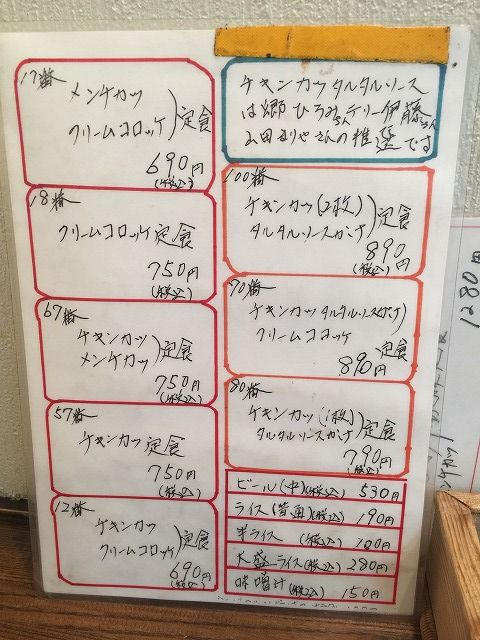 17番
メンチカツ
クリームコロッケ
定食
690円
(税込)
18番
クリームコロッケ定食
750円
(税込)
67番
チキンカツ
メンチカツ
定食
750円
(税込)
57番
チキンカツ定食
750円
(税込)
12番
チキンカツ
クリームコロッケ
定食
690円
(税込)
チキンカツタルタルソース
は郷ひろみさんテリー伊藤さん
山田まりやさんの推選です
100番
チキンカツ(2枚)
タルタルソースがけ
定食
890円
(税込)
70番
チキンカツタルタルソースがけ
クリームコロッケ
定食
890円
80番
チキンカツ(1枚)
タルタルソースがけ
定食
790円
(税込)
ビール(中)(税込) 530円
ライス(普通)(税込) 190円
半ライス (税込) 100円
大盛ライス(税込) 280円
味噌汁(税込) 150円
1280円